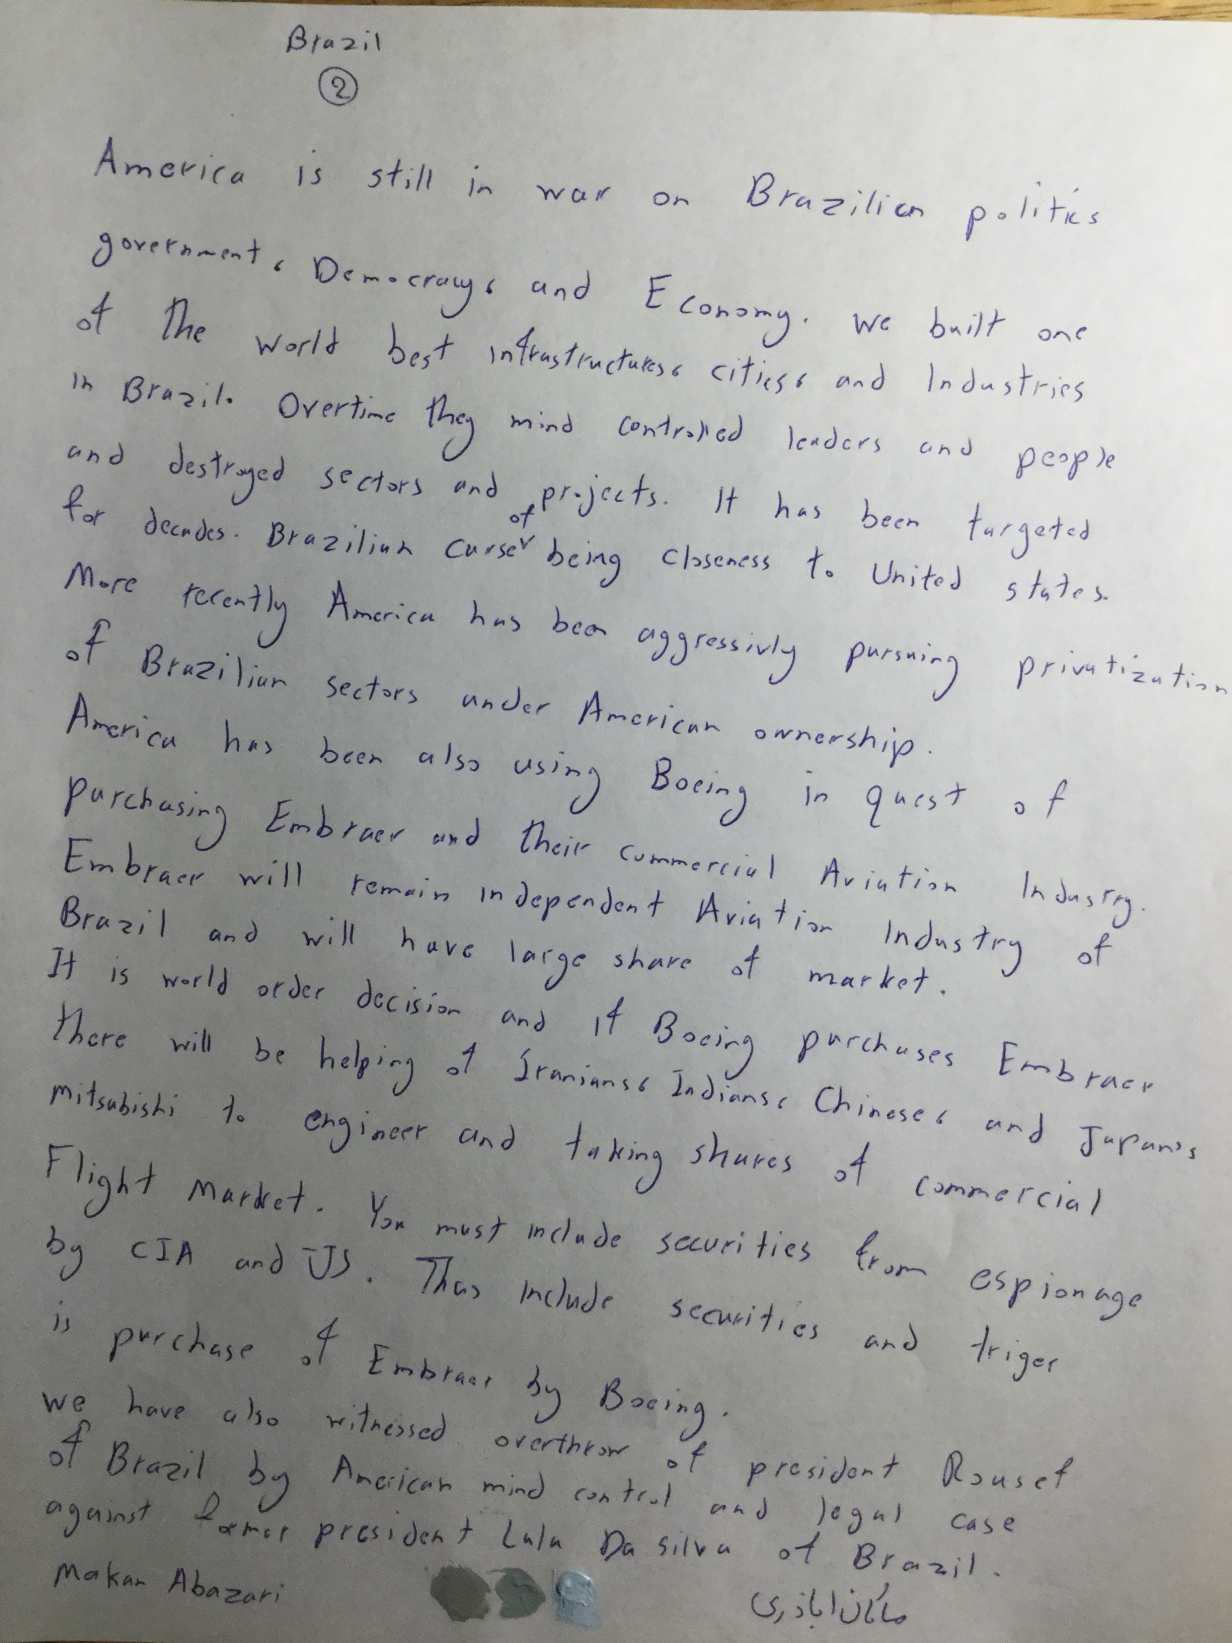 Brazil
2
America is still in war on Brazilian politics
government, Democracy, and Economy. we built one
of the world best infrastructures, cities, and Industries
in Brazil. Overtime they mind controlled leaders and people
and destroyed sectors and projects. It has been targeted
for decades. Brazilian curse of being closeness to United states.
More recently America has been aggressivly pursuing privatization
of Brazilian sectors under American ownership.
America has been also using Boeing in quest of
purchasing Embraer and their commercial Aviation Industry.
Embraer will remain independent Aviation Industry of
Brazil and will have large share of market.
It is world order decision and if Boeing purchases Embraer
there will be helping of Iranians, Indians, Chinese, and Japan's
mitsubishi to engineer and taking shares of commercial
Flight Market. You must include securities from espionage
by CIA and US. Thus include securities and triger
is purchase of Embraer by Boeing.
we have also witnessed overthrow of president Rousef
of Brazil by American mind control and legal case
against former president Lula Da silva of Brazil.
Makan Abazari
ماکان اباذری